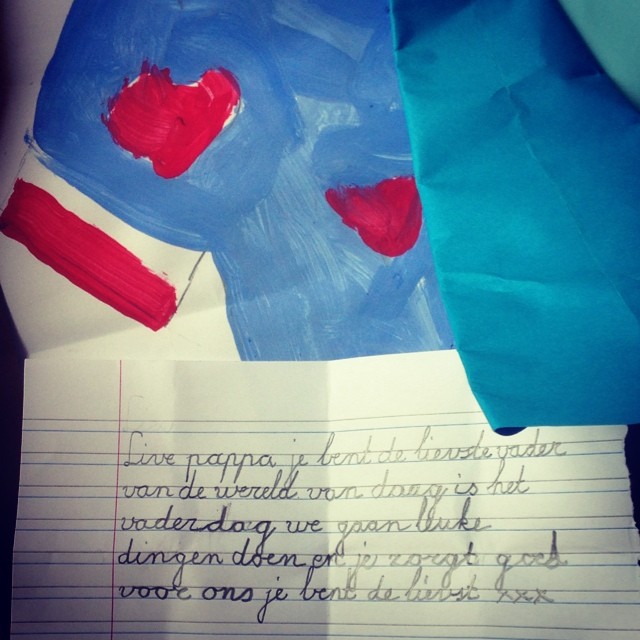 Live pappa je bent de lievste vader
van de wereld van daag is het
vaderdag we gaan lluke
dingen doen en je zorgt goed
voor ons je bent de lievst xxx